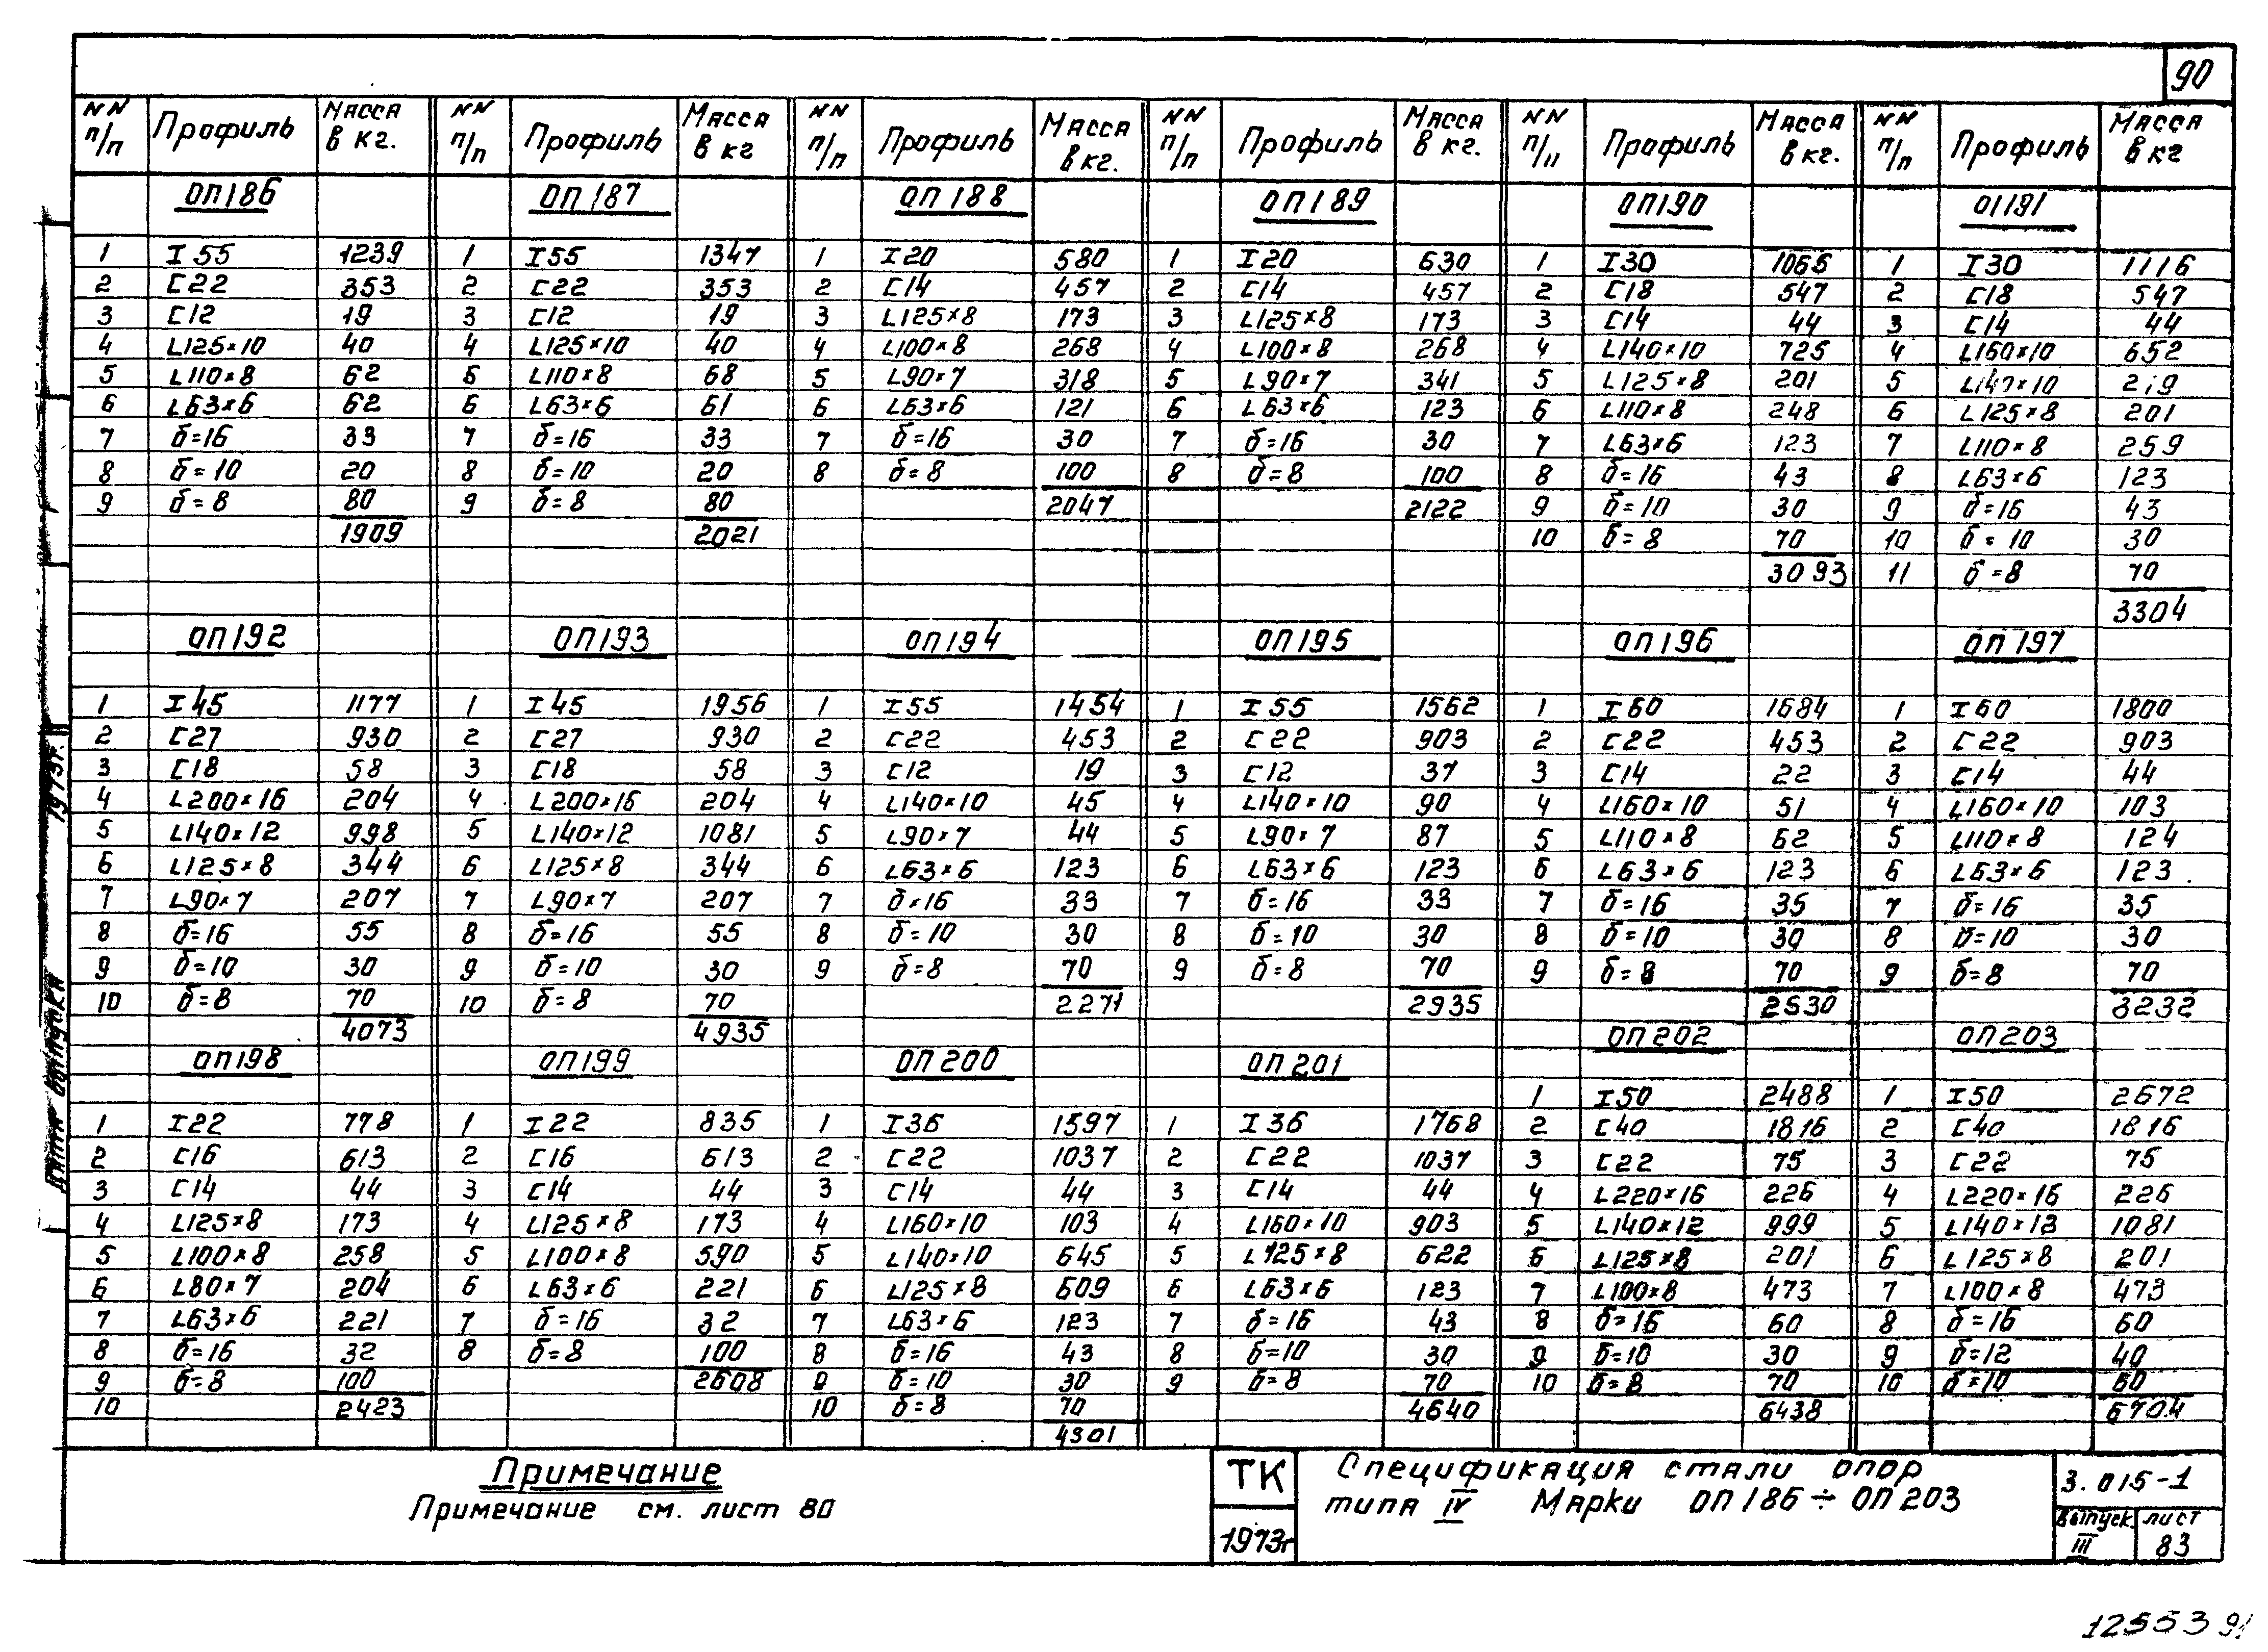 90
NN п/п Профиль Масса в кг. NN п/п Профиль Масса в кг NN п/п Профиль Масса в кг. NN п/п Профиль Масса в кг. NN п/п Профиль Масса в кг. NN п/п Профиль Масса в кг
ОП186 ОП187 ОП188 ОП189 ОП190 ОП191
1 I55 1239 1 I55 1347 1 I20 580 1 I20 630 1 I30 1065 1 I30 1116
2 С22 353 2 С22 353 2 С14 457 2 С14 457 2 С18 547 2 С18 547
3 С12 19 3 С12 19 3 L125×8 173 3 L125×8 173 3 С14 44 3 С14 44
4 L125×10 40 4 L125×10 40 4 L100×8 268 4 L100×8 268 4 L140×10 725 4 L160×10 652
5 L110×8 62 5 L110×8 68 5 L90×7 318 5 L90×7 341 5 L125×8 201 5 L140×10 219
6 L63×6 62 6 L63×6 61 6 L63×6 121 6 L63×6 123 6 L110×8 248 6 L125×8 201
7 б=16 33 7 б=16 33 7 б=16 30 7 б=16 30 7 L63×6 123 7 L110×8 259
8 б=10 20 8 б=10 20 8 б=8 100 8 б=8 100 8 б=16 43 8 L63×6 123
9 б=8 80 9 б=8 80 2047 2122 9 б=10 30 9 б=16 43
1909 2021 10 б=8 70 10 б=10 30
3093 11 б=8 70
3304
ОП192 ОП193 ОП194 ОП195 ОП196 ОП197
1 I45 1177 1 I45 1956 1 I55 1454 1 I55 1562 1 I60 1684 1 I60 1800
2 С27 930 2 С27 930 2 С22 453 2 С22 903 2 С22 453 2 С22 903
3 С18 58 3 С18 58 3 С12 19 3 С12 37 3 С14 22 3 С14 44
4 L200×16 204 4 L200×16 204 4 L140×10 45 4 L140×10 90 4 L160×10 51 4 L160×10 103
5 L140×12 998 5 L140×12 1081 5 L90×7 44 5 L90×7 87 5 L110×8 62 5 L110×8 124
6 L125×8 344 6 L125×8 344 6 L63×6 123 6 L63×6 123 6 L63×6 123 6 L63×6 123
7 L90×7 207 7 L90×7 207 7 б=16 33 7 б=16 33 7 б=16 35 7 б=16 35
8 б=16 55 8 б=16 55 8 б=10 30 8 б=10 30 8 б=10 30 8 б=10 30
9 б=10 30 9 б=10 30 9 б=8 70 9 б=8 70 9 б=8 70 9 б=8 70
10 б=8 70 10 б=8 70 2271 2935 2530 3232
4073 4935
ОП198 ОП199 ОП200 ОП201 ОП202 ОП203
1 I50 2488 1 I50 2672
1 I22 778 1 I22 835 1 I36 1597 1 I36 1768 2 С40 1816 2 С40 1816
2 С16 613 2 С16 613 2 С22 1037 2 С22 1037 3 С22 75 3 С22 75
3 С14 44 3 С14 44 3 С14 44 3 С14 44 4 L220×16 226 4 L220×16 226
4 L125×8 173 4 L125×8 173 4 L160×10 103 4 L160×10 903 5 L140×12 999 5 L140×12 1081
5 L100×8 258 5 L100×8 590 5 L140×10 645 5 L125×8 622 6 L125×8 201 6 L125×8 201
6 L80×7 204 6 L63×6 221 6 L125×8 609 6 L63×6 123 7 L100×8 473 7 L100×8 473
7 L63×6 221 7 б=16 32 7 L63×6 123 7 б=16 43 8 б=16 60 8 б=16 60
8 б=16 32 8 б=8 100 8 б=16 43 8 б=10 30 9 б=10 30 9 б=12 40
9 б=8 100 2608 9 б=10 30 9 б=8 70 10 б=8 70 10 б=10 60
10 2423 10 б=8 70 4640 6438 6704
4301
Примечание
Примечание см. лист 80
ТК
1973г
Спецификация стали опор
типа IV Марки ОП186÷ОП203
3.015-1
выпуск III
лист 83
Дата выпуска 1973г.
12553 91